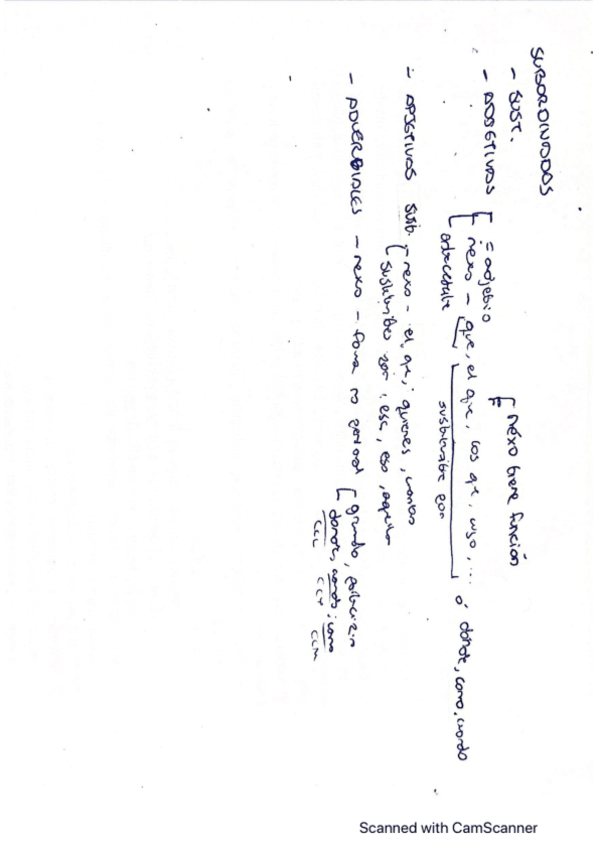 SUBORDINADAS
- SUST.
- ADJETIVAS [ = adjetivo [ nexo tiene función
nexo - que, el que, los que, cuyo, ... ó donde, como, cuando
antecedente sustituible por
- ADJETIVAS SUST. [ nexo - el que, quienes, cuantos
sustituibles por ese, eso, aquello
- ADVERBIALES - nexo - forma no personal [ gerundio, participio
donde, cuando, como
CCL CCT CCM
Scanned with CamScanner